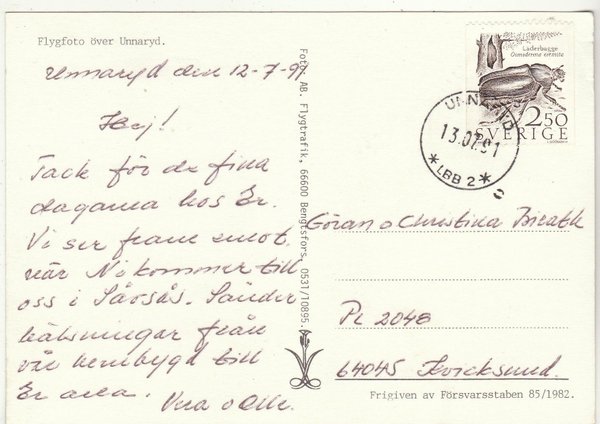 Flygfoto över Unnaryd.
Unnaryd den 12-7-91
Hej!
Tack för de fina
dagarna hos Er.
Vi ser fram emot
när Ni kommer till
oss i Sävsås. Sänder
hälsningar från
vår hembygd till
Er alla.
Vera o Olle.
Foto AB. Flygtrafik, 66600 Bengtsfors. 0531/10895.
Läderbagge
Osmoderma eremita
2.50
SVERIGE
UNNARYD
13.07.91
* LBB 2 *
Göran o Christina
PL 2048
64045 Kvicksund.
Frigiven av Försvarsstaben 85/1982.